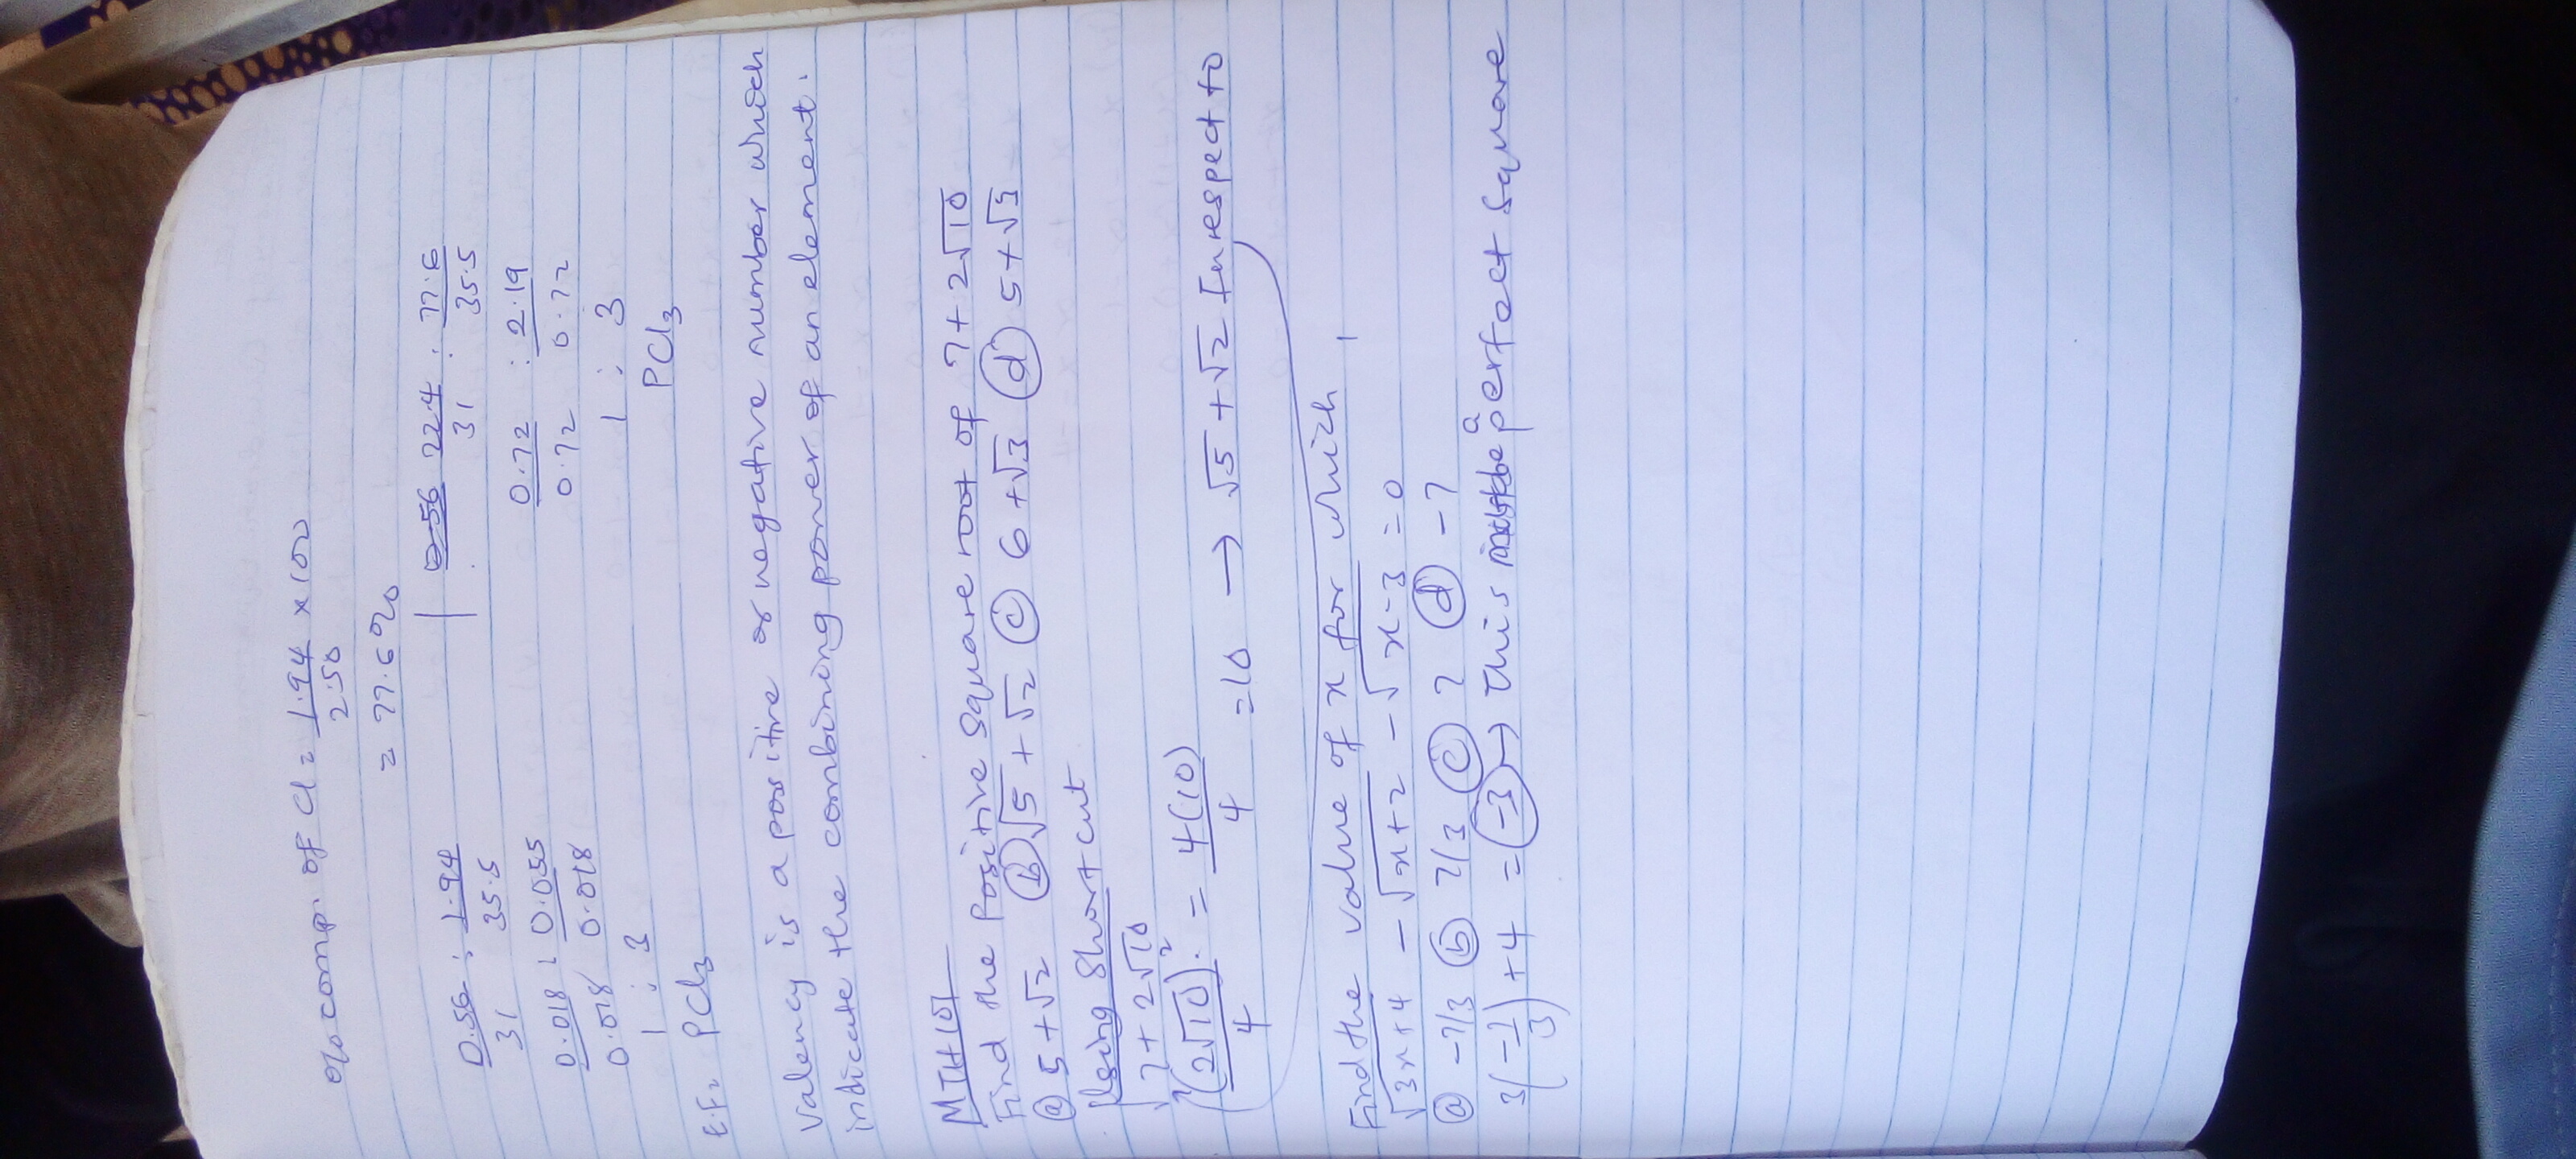 % comp. of Cl = 1.94/2.50 × 100
= 77.6%
0.56/31 : 1.94/35.5
0.018/0.018 : 0.055/0.018
1 : 3
E.F = PCl₃
0.56 22.4/31 : 77.6/35.5
0.72/0.72 : 2.19/0.72
1 : 3
PCl₃
Valency is a positive or negative number which
indicate the combining power of an element.
MTH 101
Find the Positive Square root of 7+2√10
(a) 5+√2 (b) √5+√2 (c) 6+√3 (d) 5+√3
Using Shortcut
√7+2√10
(2√10)²/4 = 4(10)/4 = 10 → √5+√2 In respect to
Find the value of x for which,
√3x+4 - √x+2 - √x-3 = 0
(a) -7/3 (b) 7/3 (c) 7 (d) -7
3(-7/3)+4 = -3 → This must be a perfect square